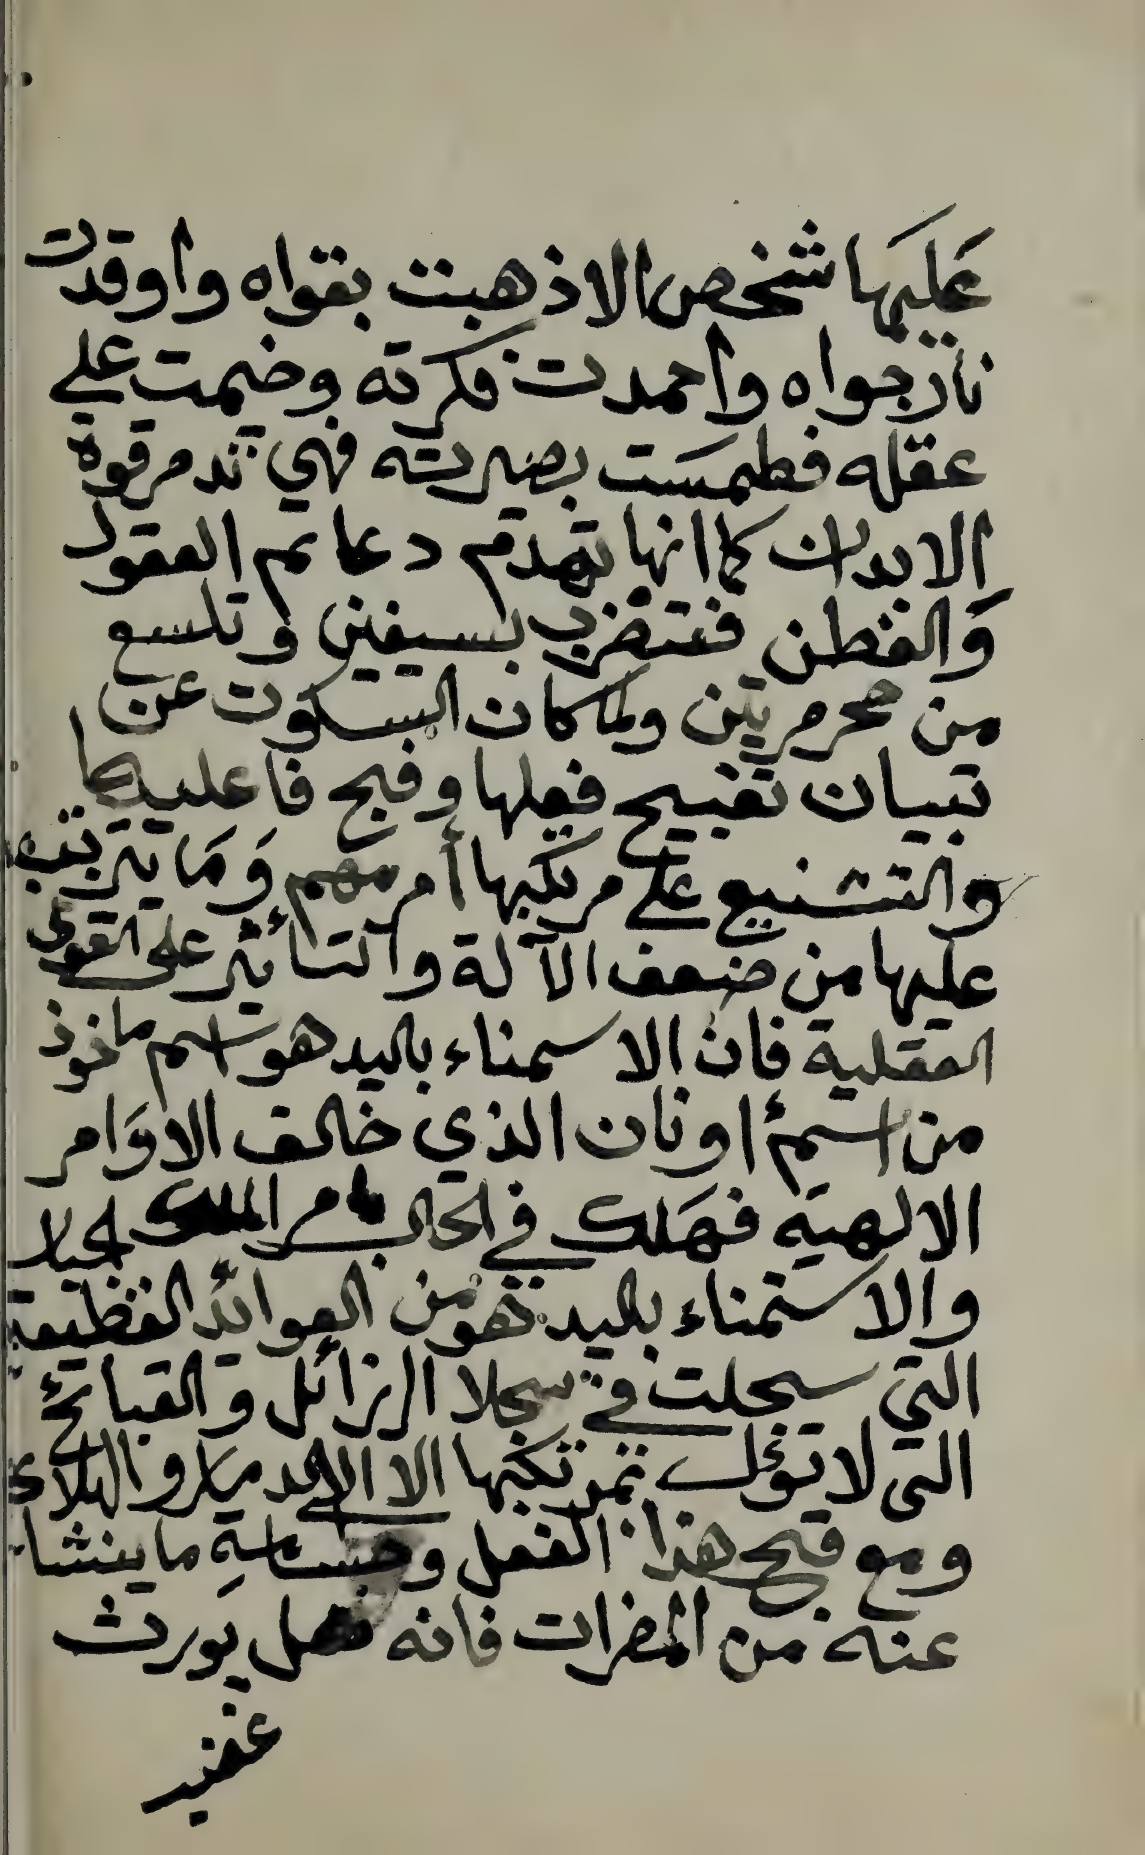 عَليهَا شخص الا ذهبت بقواه واوقدت
نار جواه واحمدت فكرته وضيمت علي
عقله فطمسَت بصيرته فهي تدمر قوة
الابدان كما انها تهدم دعايم العقول
وَالفطن فتضرب بسيفين وتلسع
من محرمتين ولما كان السكوت عن
تبيان تقبيح فعلها وقبح فاعليها
والتشنيع على مرتكبها أمر مهم وَمَا يترتب
عليها من ضعف الآلة والتأثير على القوى
العقلية فان الاسمناء باليد هو اسم ماخوذ
من اسم أونان الذي خالف الاوَامر
الالهية فهَلك في الحال بامر الملك
والاستمناء باليد هو من العوائد الفظيعة
التي سجلت في سجلا الرزائل والقبائح
التي لا تؤل بمرتكبها الا الا الدمار والهلاك
ومع قبح هذا الفعل وخساسة ما ينشا
عنه من المضرات فانه يَورث